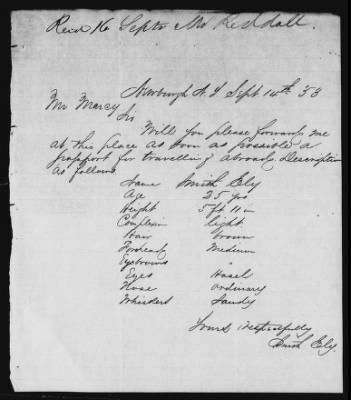 Recd 16 Septr Mr Reddall.
Newburgh N.Y Sept 14th 53
Mr Marcy
Sir
Will you please forward me
at this place as soon as possible a
passport for travelling abroad, Description
as follows
Name Smith Ely
Age 25 yrs
Height 5 ft 11 in
Complexion light
Hair brown
Forehead Medium
Eyebrows "
Eyes Hasel
Nose ordinary
Whiskers Sandy
Yours respectfully
Smith Ely.